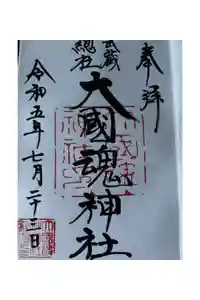 奉拝
武蔵
總社
大國魂神社
令和五年七月二十三日